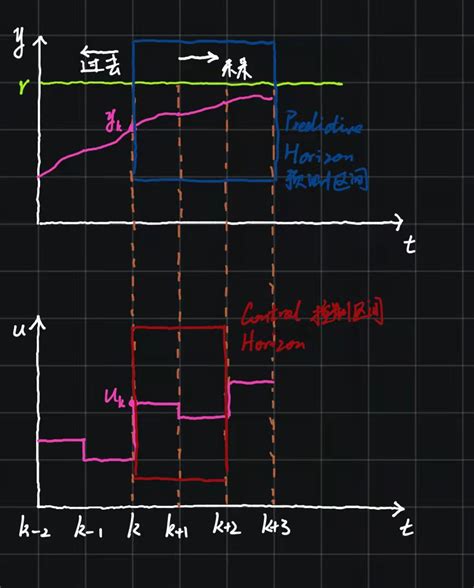 y
← 过去
→ 未来
r
y_k
Predictive
Horizon
预测区间
t
u
Control 控制区间
Horizon
u_k
k-2 k-1 k k+1 k+2 k+3
t